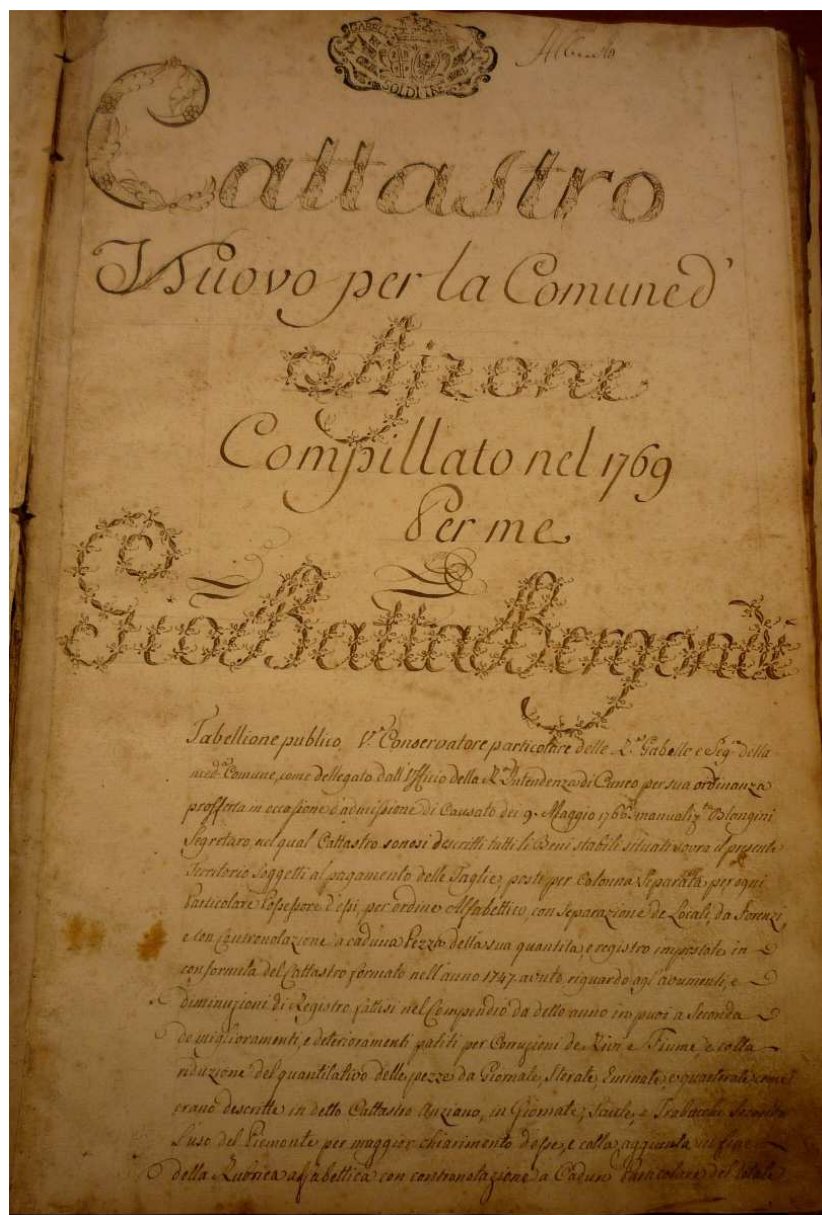 GABELLA
SOLDI TRE
Cattastro
Nuovo per la Comune d'
Ajzone
Compillato nel 1769
Per me
Gio Batta Bergondi
Tabellione publico, V.e Conservatore particolare delle R.e Gabelle e Seg.ro della
med.a Comune, come dellegato dall'Ufficio della R.a Intendenza di Cuneo per sua ordinanza
profferta in occasione d'admissione di Causato dei 9. Maggio manual.
Segretaro, nel qual Cattastro sonosi descritti tutti li Beni stabili situati sovra il presente
Territorio soggetti al pagamento delle Taglie, posti per Colonna Separata per ogni
Particolare Possessore d'essi, per ordine Alfabettico, con separazione de Locali, da Forenzi,
e con Contronotazione a caduna Pezza della sua quantita, e registro impostate in
conformita del Cattastro formato nell'anno 1747. avuto riguardo agl'aoumenti, e
diminuzioni di Registro fattisi nel Compendio da detto anno in puoi a Seconda
de miglioramenti, e deterioramenti patiti per Corruzioni de Rivi e Fiume, e colla
riduzione del quantitativo delle pezze da Giornate, Sterate, Eminate, e quarterate come
erano descritte in detto Cattastro Anziano, in Giornate, e Trabucchi Secondo
l'uso del Piemonte per maggior chiarimento d'esse, e colla aggiunta in fine
della Rubrica alfabettica con contronotazione a Cadun Particolare del totale